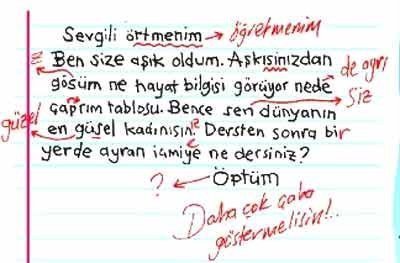 Sevgili örtmenim → öğretmenim
Ben size aşık oldum. Aşkısinızdan
gösüm ne hayat bilgisi görüyor nede de ayrı
çaprım tablosu. Bence sen dünyanın siz
güzel en güsel kadınısın. Dersten sonra bir
yerde ayran içmiye ne dersiniz?
? ← Öptüm
Daha çok çaba
göstermelisin!..